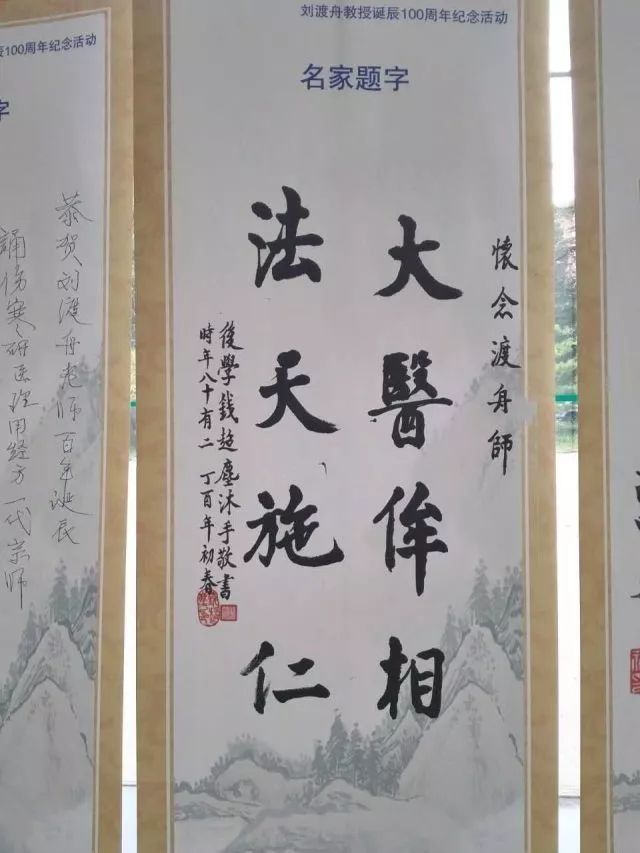 刘渡舟教授诞辰100周年纪念活动
名家题字
懷念渡舟師
大醫侔相
法天施仁
後學錢超塵沐手敬書
時年八十有二 丁酉年初春
辰100周年纪念活动
字
恭贺刘渡舟老师百年诞辰
誦傷寒、研医理用经方一代宗师